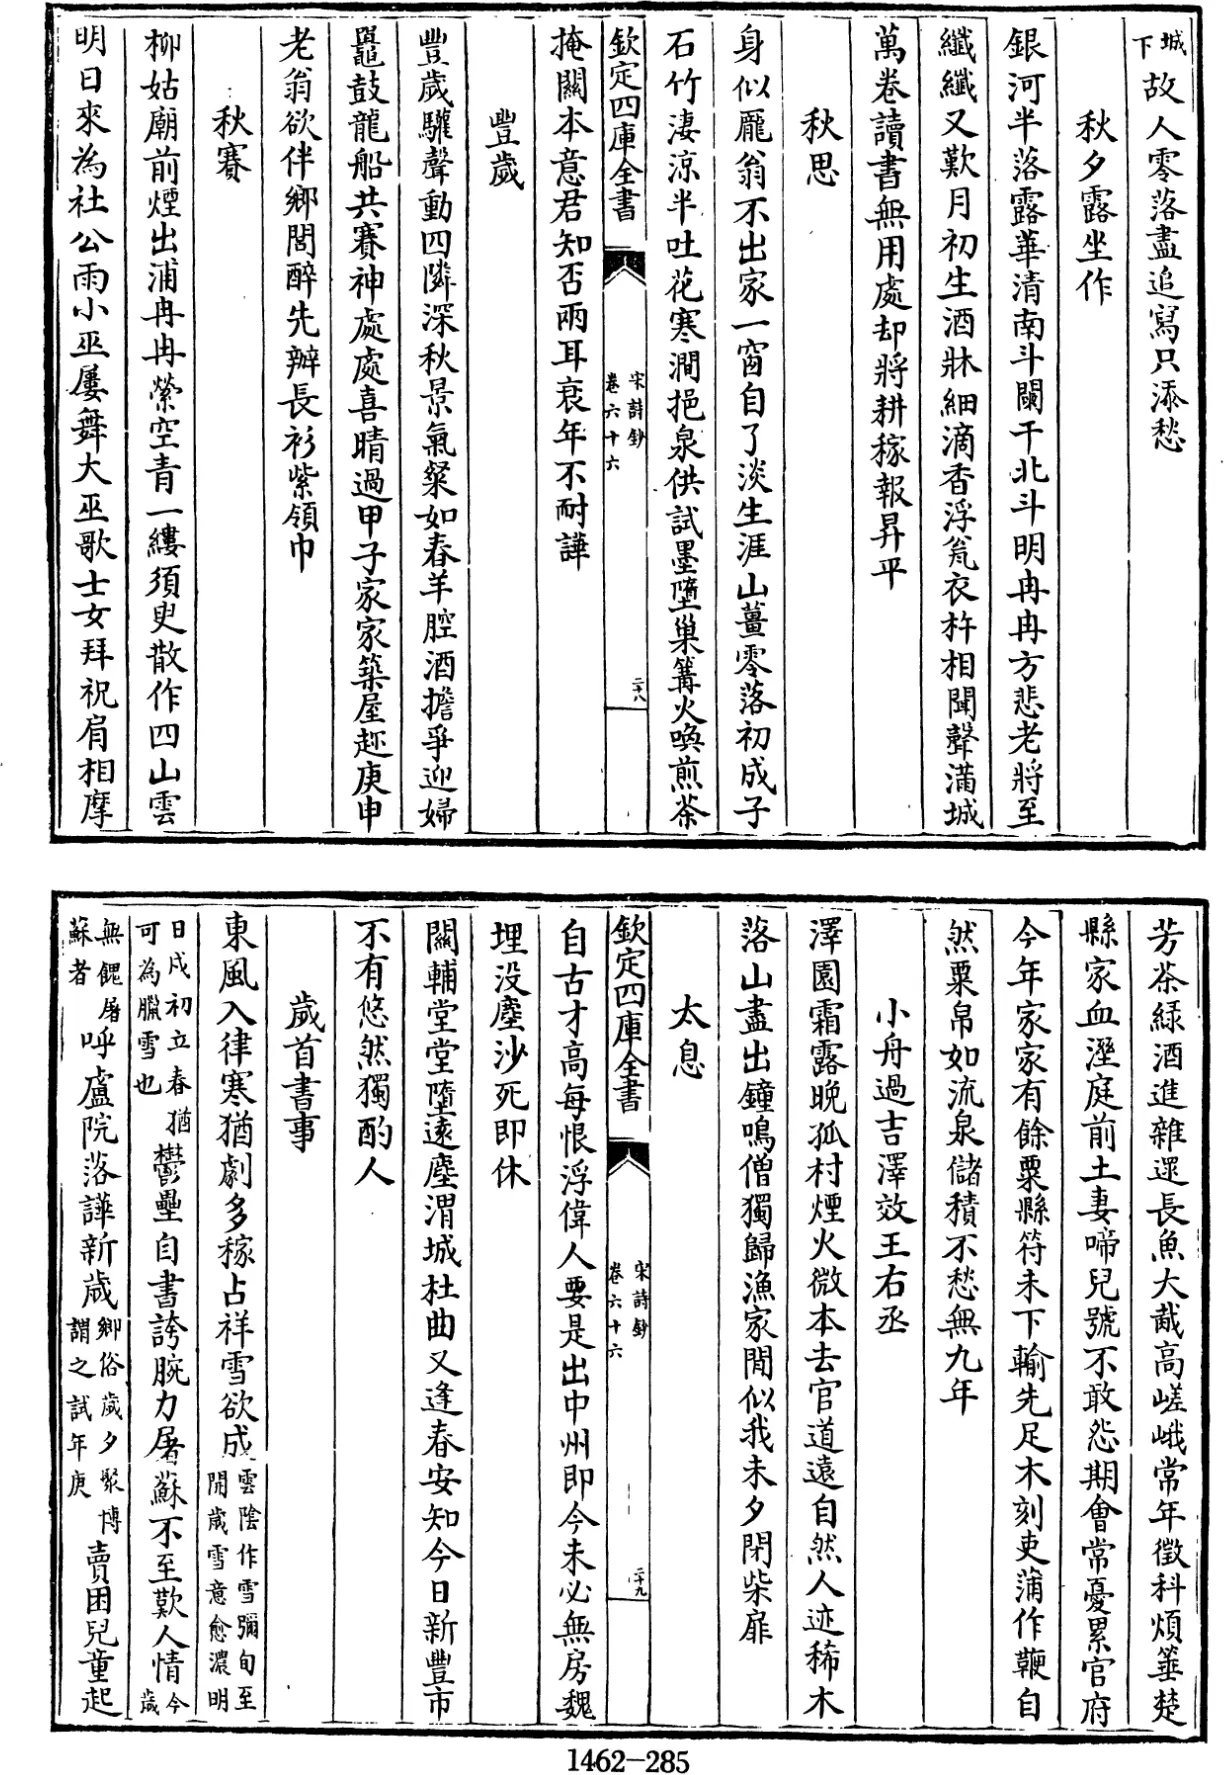 城下故人零落盡追寫只添愁
秋夕露坐作
銀河半落露華清南斗闌干北斗明冉冉方悲老將至
纖纖又歎月初生酒牀細滴香浮瓮衣杵相聞聲滿城
萬卷讀書無用處却將耕稼報昇平
秋思
身似龐翁不出家一窗自了淡生涯山薑零落初成子
石竹淒涼半吐花寒澗挹泉供試墨墮巢篝火喚煎茶
欽定四庫全書
宋詩鈔
卷六十六
二十八
掩關本意君知否兩耳衰年不耐譁
豐歲
豐歲驩聲動四隣深秋景氣粲如春羊腔酒擔爭迎婦
鼉鼓龍船共賽神處處喜晴過甲子家家築屋趂庚申
老翁欲伴鄉閭醉先辦長衫紫領巾
秋賽
柳姑廟前煙出浦冉冉縈空青一縷須臾散作四山雲
明日來為社公雨小巫屢舞大巫歌士女拜祝肩相摩
芳茶綠酒進雜遝長魚大胾高嵯峨常年徵科煩箠楚
縣家血溼庭前土妻啼兒號不敢怨期會常憂累官府
今年家家有餘粟縣符未下輸先足木刻吏蒲作鞭自
然粟帛如流泉儲積不愁無九年
小舟過吉澤效王右丞
澤園霜露晩孤村煙火微本去官道遠自然人迹稀木
落山盡出鐘鳴僧獨歸漁家閒似我未夕閉柴扉
太息
欽定四庫全書
宋詩鈔
卷六十六
二十九
自古才高每恨浮偉人要是出中州即今未必無房魏
埋没塵沙死即休
關輔堂堂墮逺塵渭城杜曲又逢春安知今日新豐市
不有悠然獨酌人
歲首書事
東風入律寒猶劇多稼占祥雪欲成雲陰作雪彌旬至開歲雪意愈濃明
日戍初立春猶可為臘雪也鬱壘自書誇腕力屠蘇不至歎人情今歲
無餽屠蘇者呼盧院落譁新歲鄉俗歲夕聚博謂之試年庚賣困兒童起
1462-285